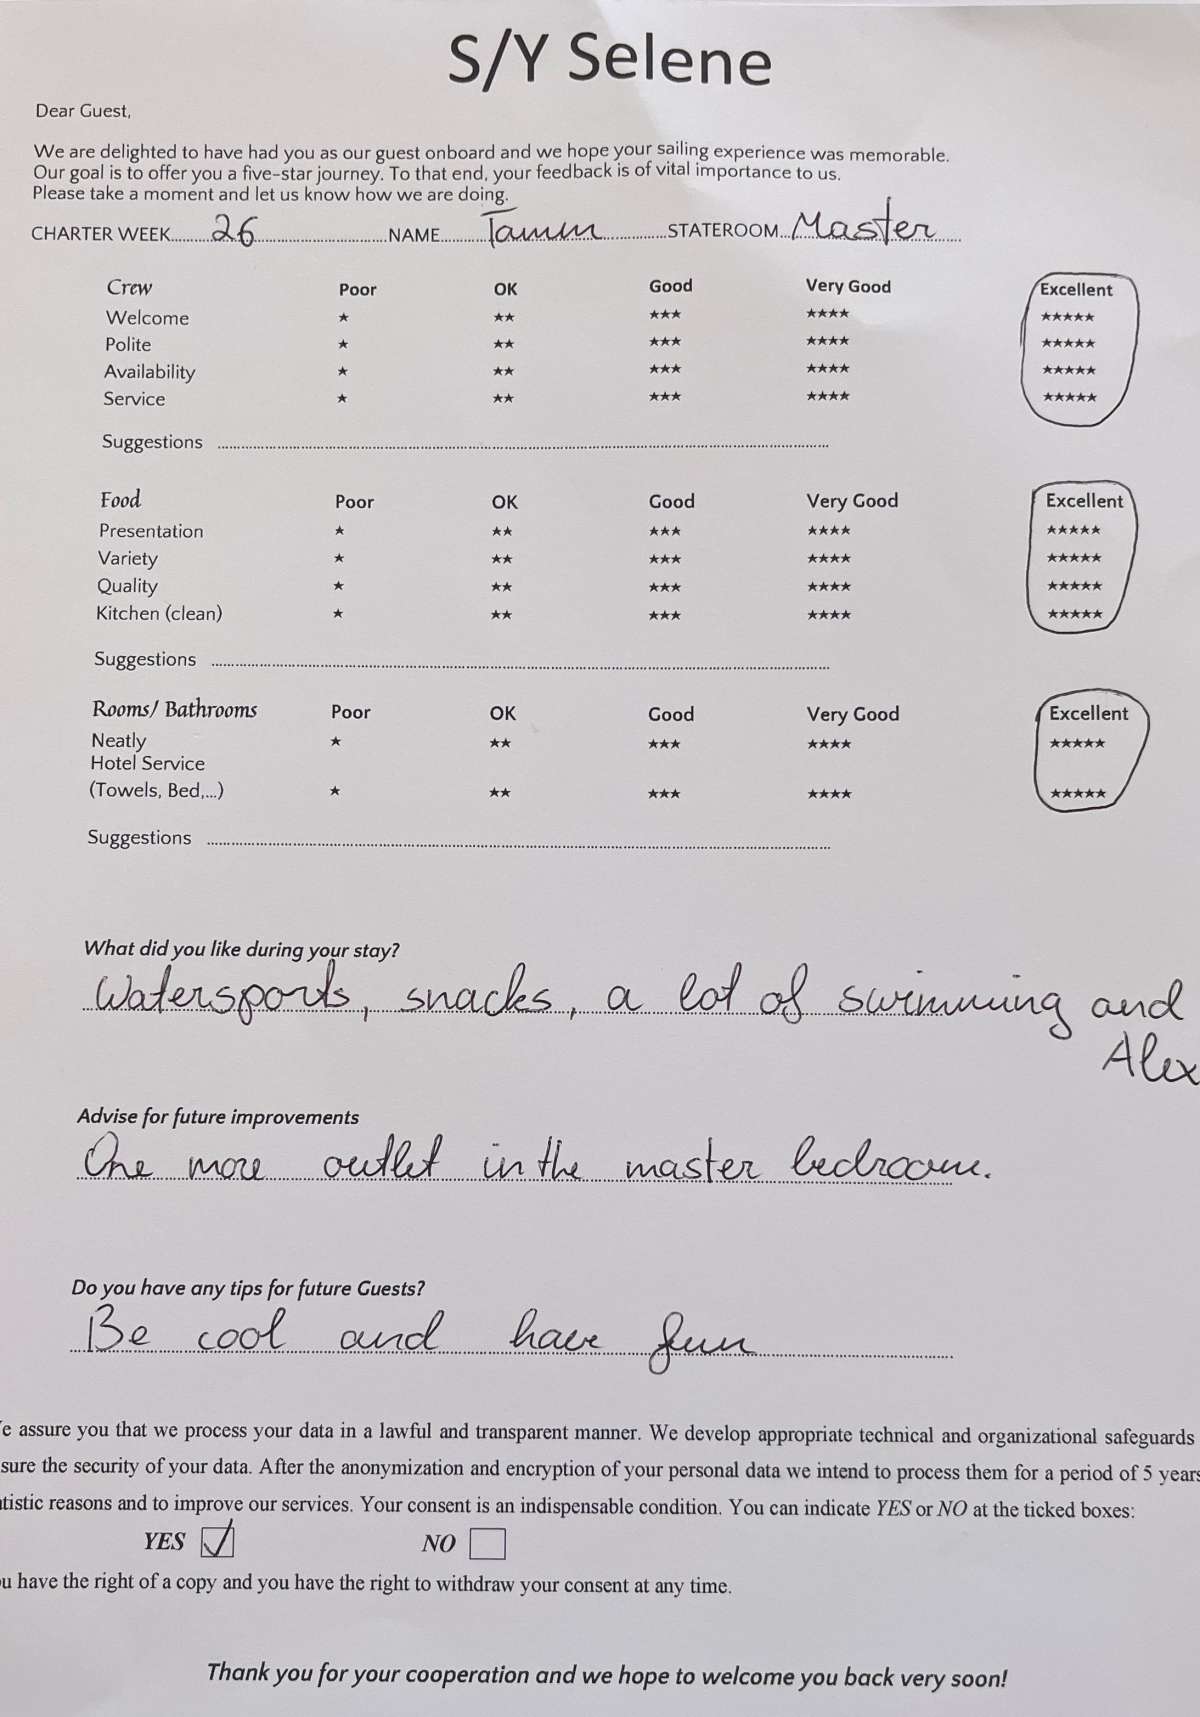 S/Y Selene
Dear Guest,
We are delighted to have had you as our guest onboard and we hope your sailing experience was memorable.
Our goal is to offer you a five-star journey. To that end, your feedback is of vital importance to us.
Please take a moment and let us know how we are doing.
CHARTER WEEK 26 NAME Tamm STATEROOM Master
Crew Poor OK Good Very Good Excellent
Welcome ★ ★★ ★★★ ★★★★ ★★★★★
Polite ★ ★★ ★★★ ★★★★ ★★★★★
Availability ★ ★★ ★★★ ★★★★ ★★★★★
Service ★ ★★ ★★★ ★★★★ ★★★★★
Suggestions
Food Poor OK Good Very Good Excellent
Presentation ★ ★★ ★★★ ★★★★ ★★★★★
Variety ★ ★★ ★★★ ★★★★ ★★★★★
Quality ★ ★★ ★★★ ★★★★ ★★★★★
Kitchen (clean) ★ ★★ ★★★ ★★★★ ★★★★★
Suggestions
Rooms/ Bathrooms Poor OK Good Very Good Excellent
Neatly ★ ★★ ★★★ ★★★★ ★★★★★
Hotel Service
(Towels, Bed,...) ★ ★★ ★★★ ★★★★ ★★★★★
Suggestions
What did you like during your stay?
Watersports, snacks, a lot of swimming and
Alex
Advise for future improvements
One more outlet in the master bedroom.
Do you have any tips for future Guests?
Be cool and have fun
e assure you that we process your data in a lawful and transparent manner. We develop appropriate technical and organizational safeguards
sure the security of your data. After the anonymization and encryption of your personal data we intend to process them for a period of 5 years
tistic reasons and to improve our services. Your consent is an indispensable condition. You can indicate YES or NO at the ticked boxes:
YES ✓ NO
u have the right of a copy and you have the right to withdraw your consent at any time.
Thank you for your cooperation and we hope to welcome you back very soon!